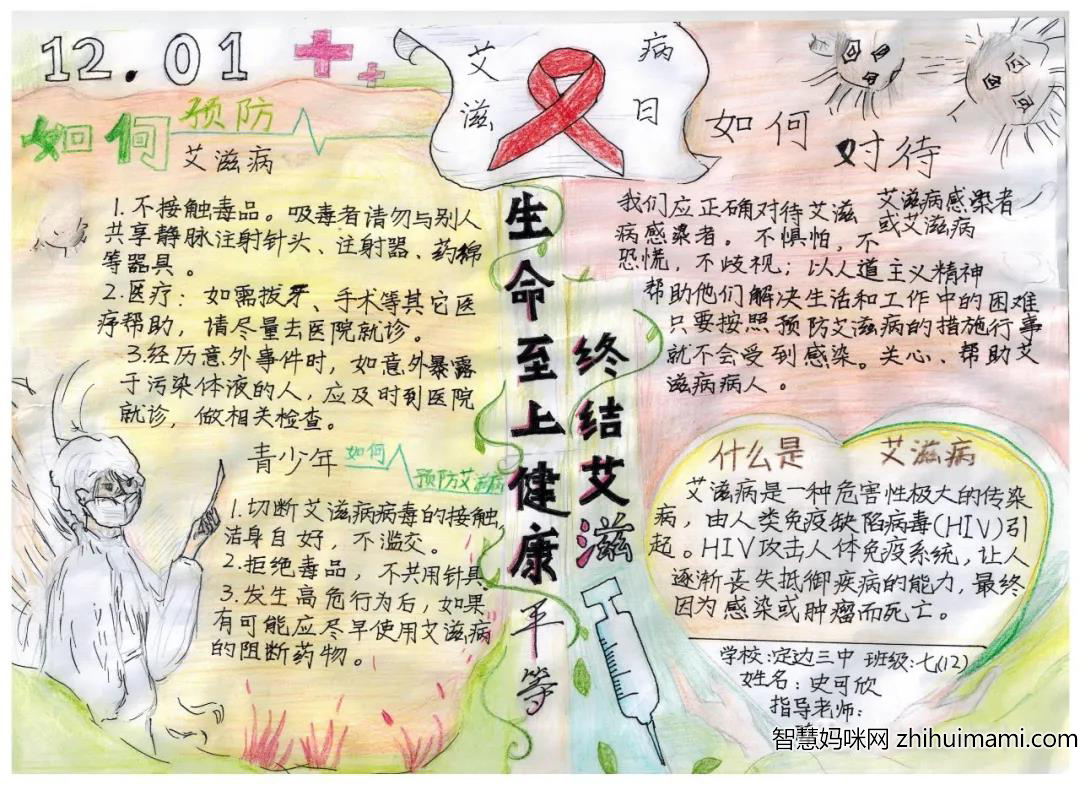 12.01
艾滋
病日
如何
预防
艾滋病
1.不接触毒品。吸毒者请勿与别人
共享静脉注射针头、注射器、药棉
等器具。
2.医疗：如需拔牙、手术等其它医
疗帮助，请尽量去医院就诊。
3.经历意外事件时，如意外暴露
于污染体液的人，应及时到医院
就诊，做相关检查。
青少年
如何
预防艾滋病
1.切断艾滋病病毒的接触，
洁身自好，不滥交。
2.拒绝毒品，不共用针具
3.发生高危行为后，如果
有可能应尽早使用艾滋病
的阻断药物。
生命至上健康平等
终结艾滋
如何
对待
艾滋病感染者
或艾滋病
我们应正确对待艾滋
病感染者。不惧怕，不
恐慌，不歧视；以人道主义精神
帮助他们解决生活和工作中的困难
只要按照预防艾滋病的措施行事
就不会受到感染。关心、帮助艾
滋病病人。
什么是
艾滋病
艾滋病是一种危害性极大的传染
病，由人类免疫缺陷病毒(HIV)引
起。HIV攻击人体免疫系统，让人
逐渐丧失抵御疾病的能力，最终
因为感染或肿瘤而死亡。
学校:定边三中 班级:七(12)
姓名：史可欣
指导老师：
智慧妈咪网 zhihuimami.com